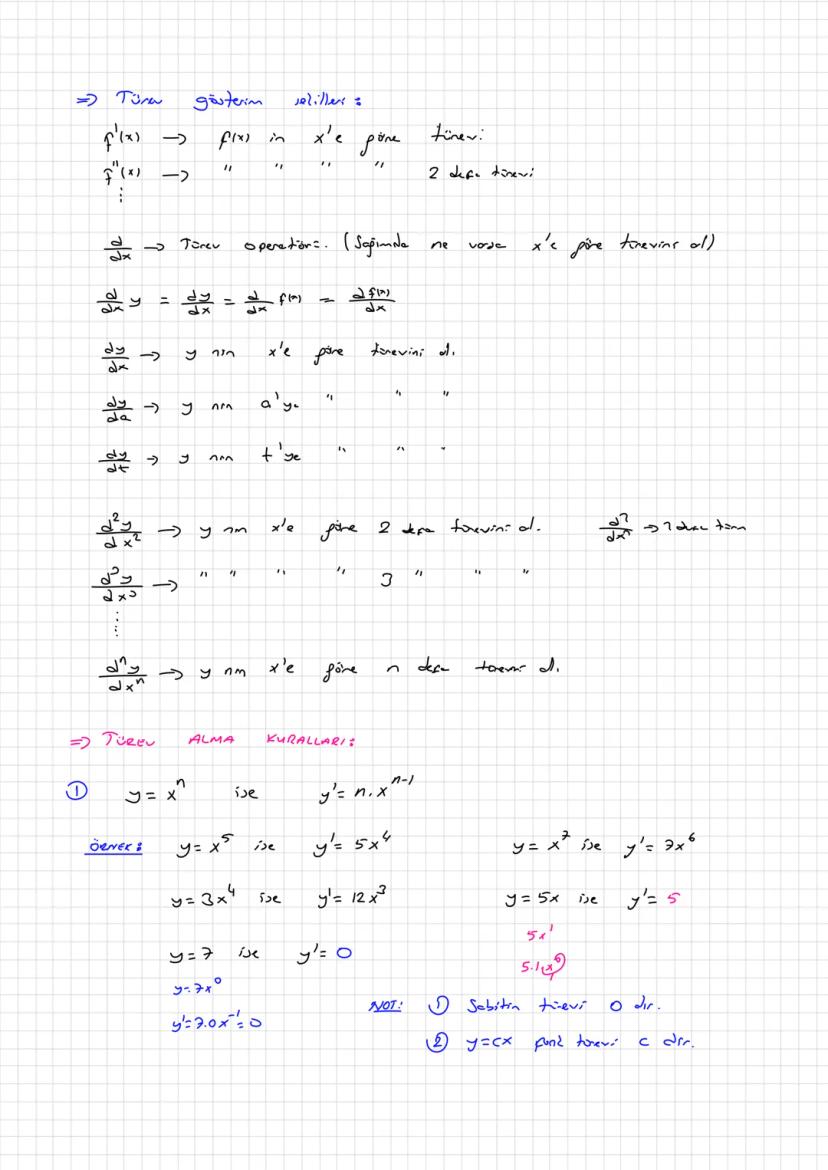 => Türev gösterim şekilleri :
f'(x) → f(x) in x'e göre türevi
f''(x) → " " " " 2 defa türevi
⋮
d/dx → Türev operatörü. (Sağımda ne varsa x'e göre türevini al)
d/dx y = dy/dx = d/dx f(x) = d f(x)/dx
dy/dx → y nin x'e göre türevini al.
dy/da → y nin a'ya " " "
dy/dt → y nin t'ye " " "
d²y/dx² → y nin x'e göre 2 defa türevini al.
d³y/dx³ → " " " " 3 " " "
⋮
dⁿy/dxⁿ → y nin x'e göre n defa türevini al.
=> TÜREV ALMA KURALLARI :
① y = xⁿ ise y' = n.xⁿ⁻¹
ÖRNEK : y = x⁵ ise y' = 5x⁴ y = x⁷ ise y' = 7x⁶
y = 3x⁴ ise y' = 12x³ y = 5x ise y' = 5
5x¹
y = 7 ise y' = 0 5.1.x⁰
1
y = 7x⁰
NOT : ① Sabitin türevi 0 dır.
y' = 7.0x⁻¹ = 0
② y = cx fonk türevi c dir.